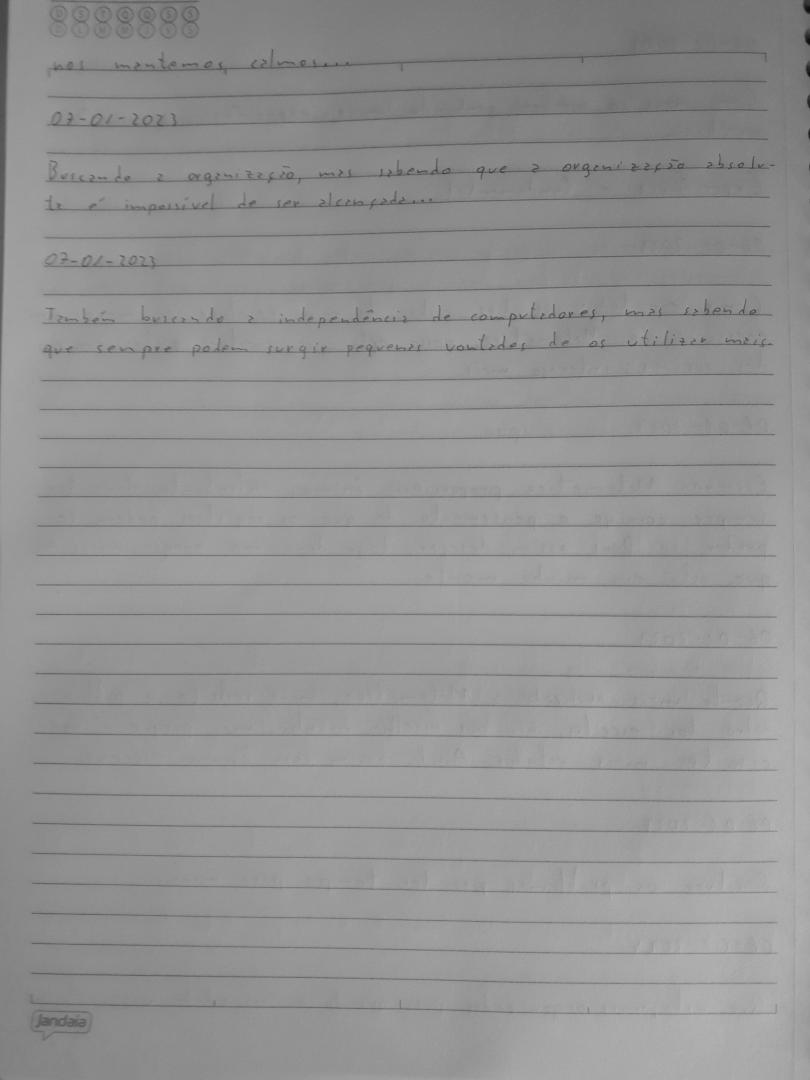 D S T Q Q S S
D L M M J V S
nos mantemos calmos...
07-01-2023
Buscando a organização, mas sabendo que a organização absolu-
ta é impossível de ser alcançada...
07-01-2023
Também buscando a independência de computadores, mas sabendo
que sempre podem surgir pequenas vontades de os utilizar mais.
Jandaia